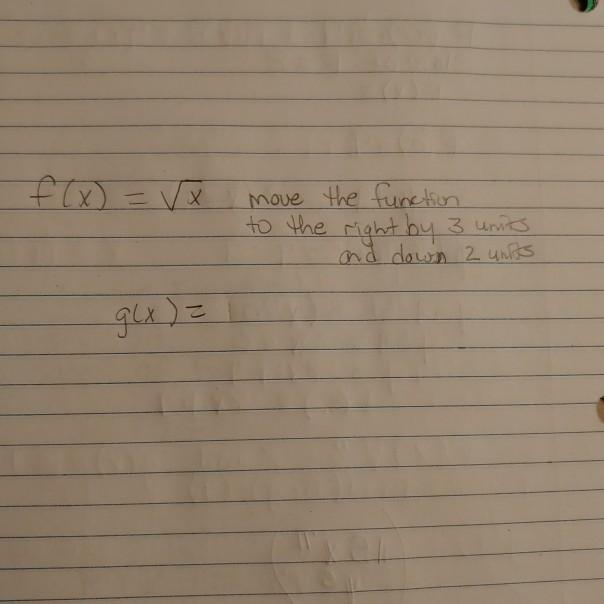 f(x) = √x move the function
to the right by 3 units
and down 2 units
g(x) =